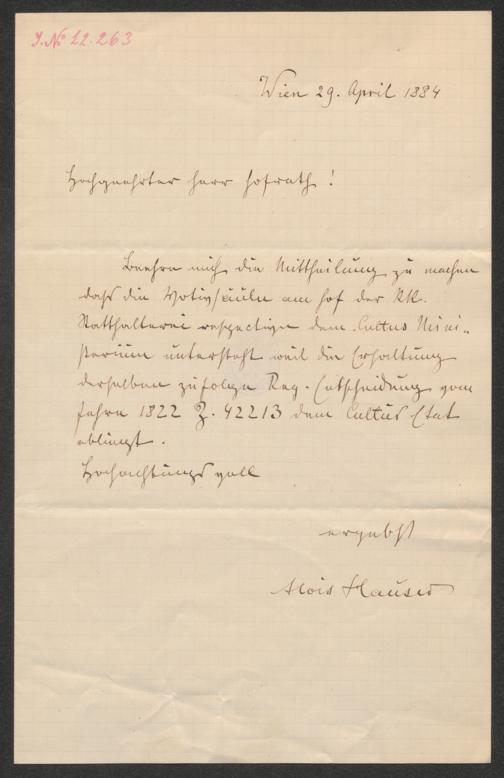 J. No 22.263
Wien 29. April 1884
Hochgeehrter Herr Hofrath!
Beehre mich die Mittheilung zu machen
daß die Votivsäule am Hof der kk.
Statthalterei respective dem Cultus Mini„
sterium untersteht weil die Erhaltung
derselben zufolge Reg. Entscheidung vom
Jahre 1822 Z. 42213 dem Cultus Etat
obliegt.
Hochachtungsvoll
ergebst
Alois Hauser